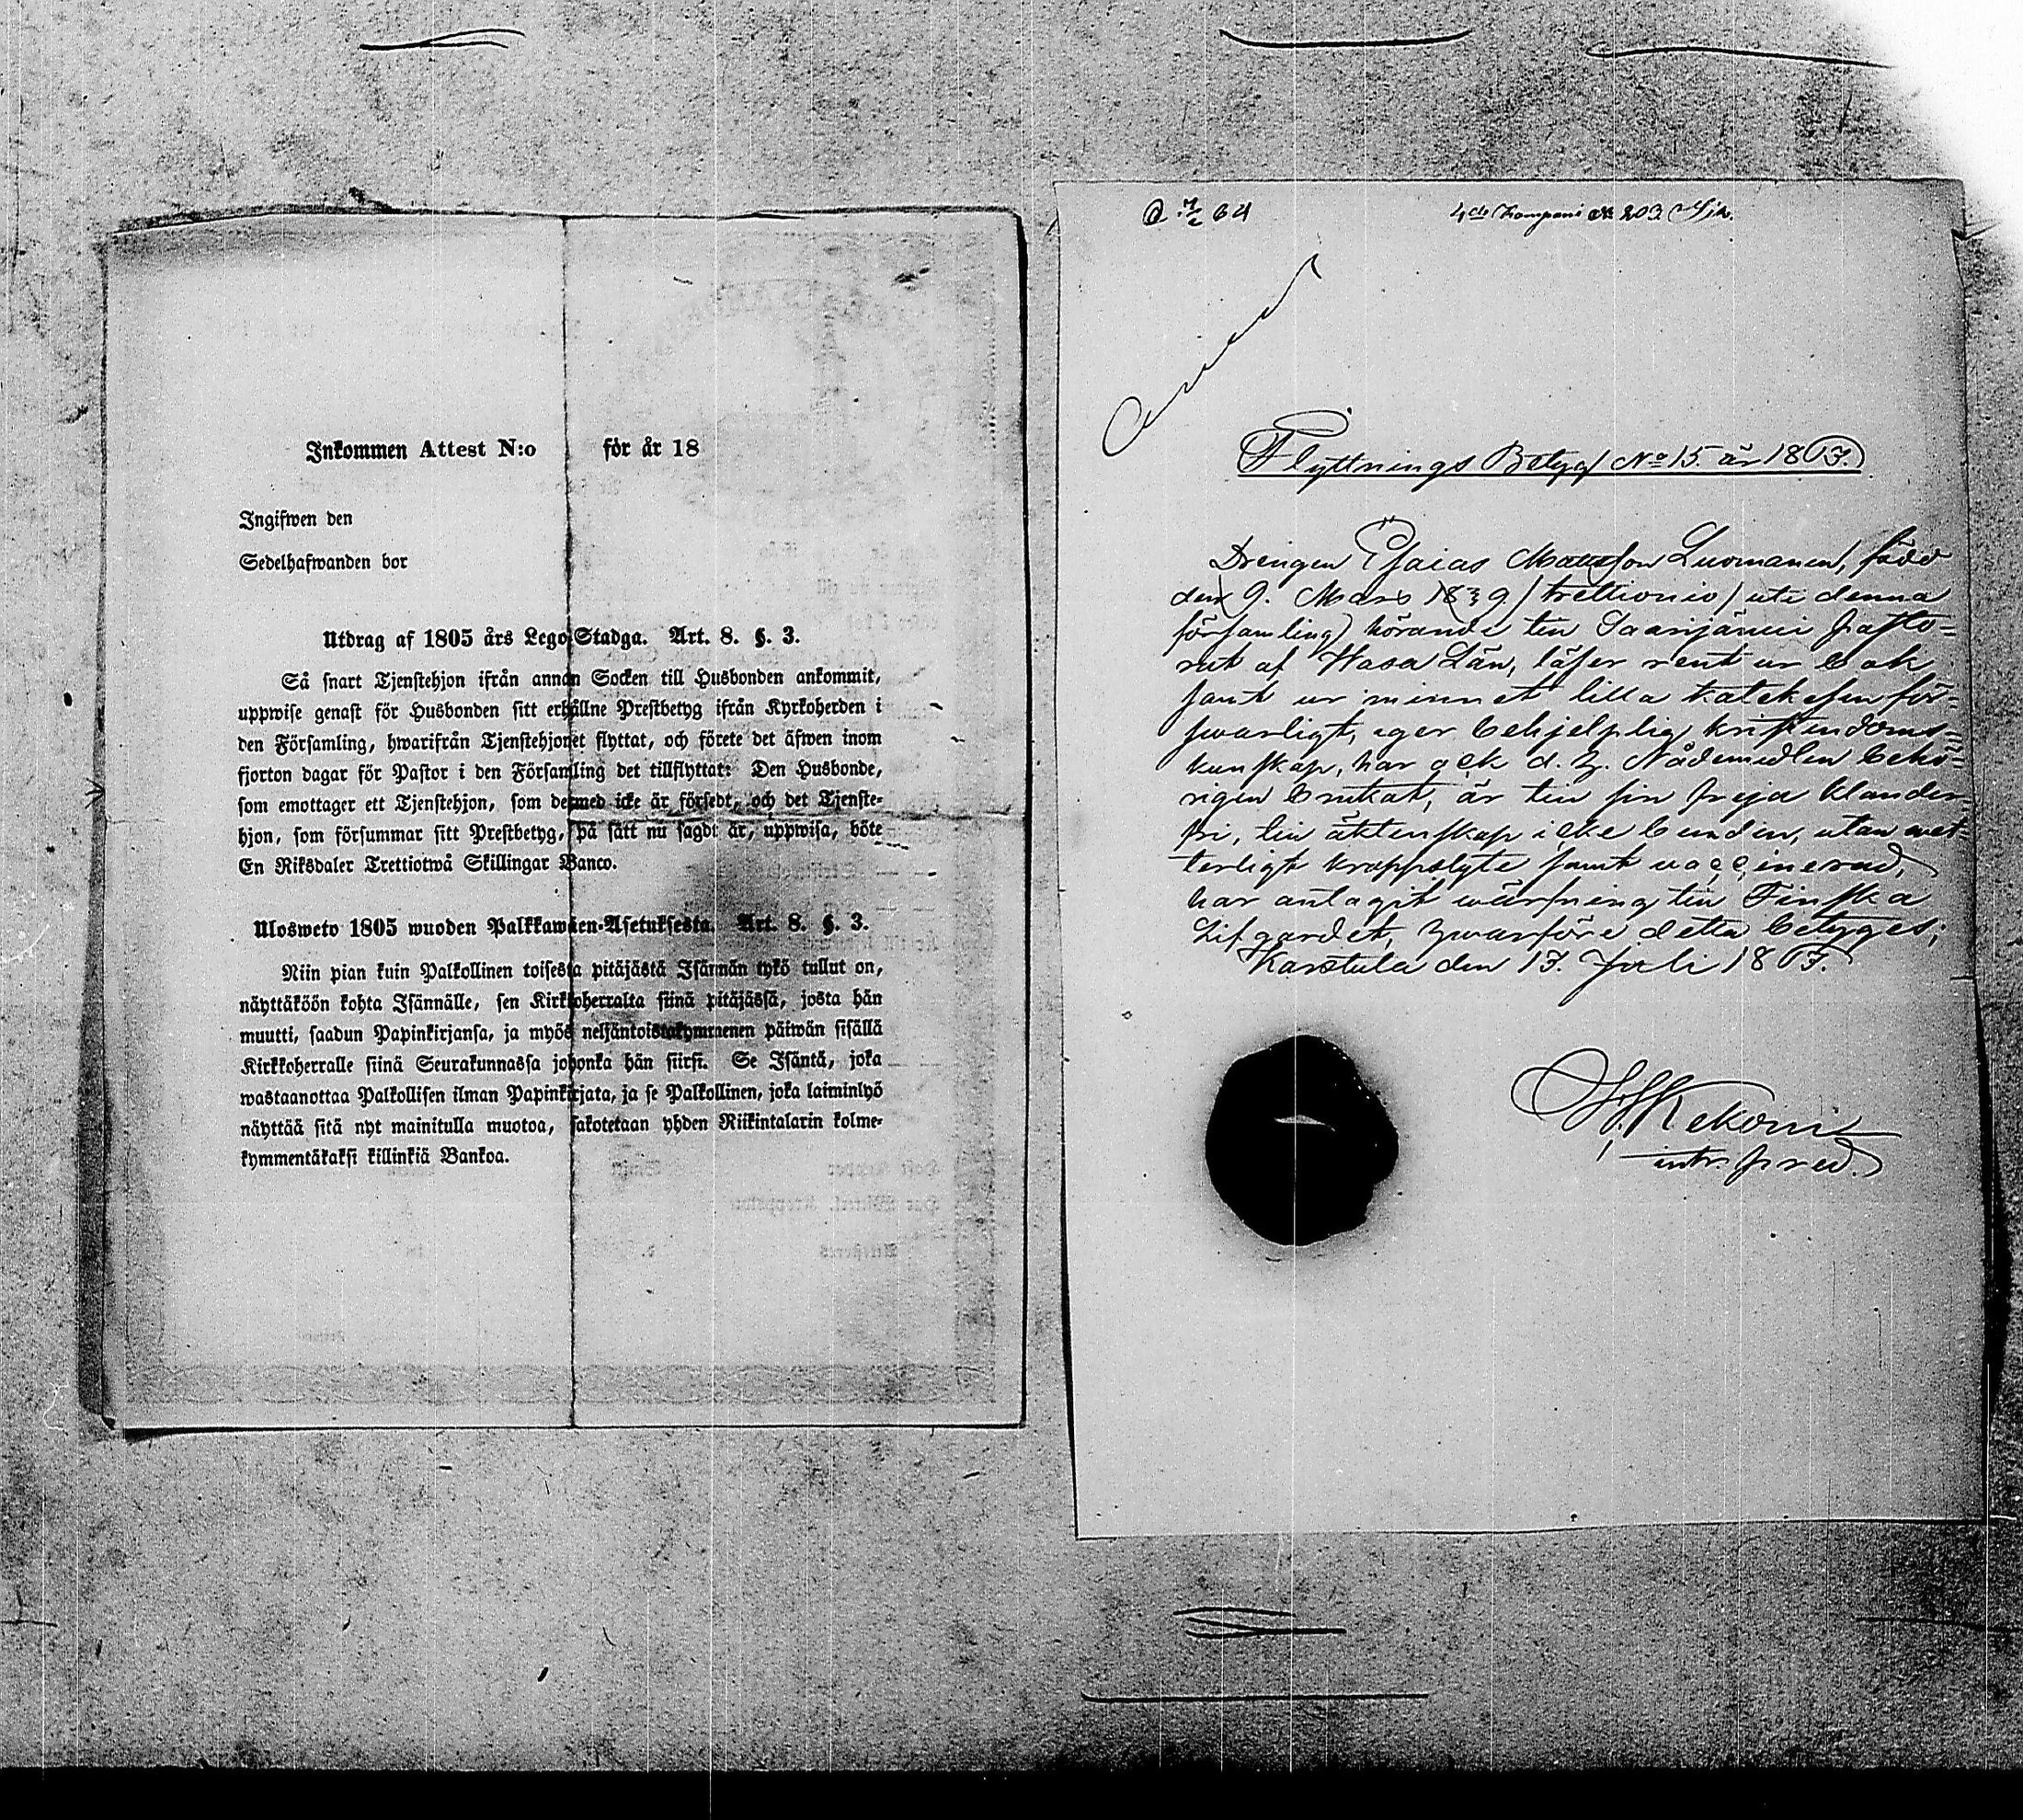 Inkommen Attest N:o för år 18
Ingifwen den
Sedelhafwanden bor
Utdrag af 1805 års Lego-Stadga. Art. 8. §. 3.
Så snart Tjenstehjon ifrån annan Socken till Husbonden ankommit,
uppwise genast för Husbonden sitt erhållne Prestbetyg ifrån Kyrkoherden i
den Församling, hwarifrån Tjenstehjonet flyttat, och förete det äfwen inom
fjorton dagar för Pastor i den Församling det tillflyttat: Den Husbonde,
som emottager ett Tjenstehjon, som dermed icke är försedt, och det Tjenste-
hjon, som försummar sitt Prestbetyg, på sätt nu sagdt är, uppwisa, böte
En Riksdaler Trettiotwå Skillingar Banco.
Ulosweto 1805 wuoden Palkkawäen-Asetuksesta. Art. 8. §. 3.
Niin pian kuin Palkollinen toisesta pitäjästä Isännän tykö tullut on,
näyttäköön kohta Isännälle, sen Kirkkoherralta siinä pitäjässä, josta hän
muutti, saadun Papinkirjansa, ja myös neljäntoistakymmenen päiwän sisällä
Kirkkoherralle siinä Seurakunnassa johonka hän siirsi. Se Isäntä, joka
wastaanottaa Palkollisen ilman Papinkirjata, ja se Palkollinen, joka laiminlyö
näyttää sitä nyt mainitulla muotoa, sakotetaan yhden Riikintalarin kolme-
kymmentäkaksi killinkiä Bankoa.
4de Kompani № 203
Flyttnings Betyg No 15. år 1863.
Drengen Esaias Mattsson Luomanen, född
den 9. Mars 1839 / trettionio / uti denna
församling) hörande till Saarijärvi pasto-
rat af Wasa Län, läser rent ur bok
samt ur minnet lilla katekesen för-
svarligt, eger behjelplig kristendoms-
kunskap, har ock d. H. Nådemedlen behö-
rigen brukat, är till sin frejd klander-
fri, till äktenskap icke bunden, utan wet-
terligt kroppslyte samt vaccinerad,
har antagit wärfning till Finska
Lifgardet, hwarföre detta betyges;
Karstula den 13. Juli 1863.
Kekoni
intr. pred.